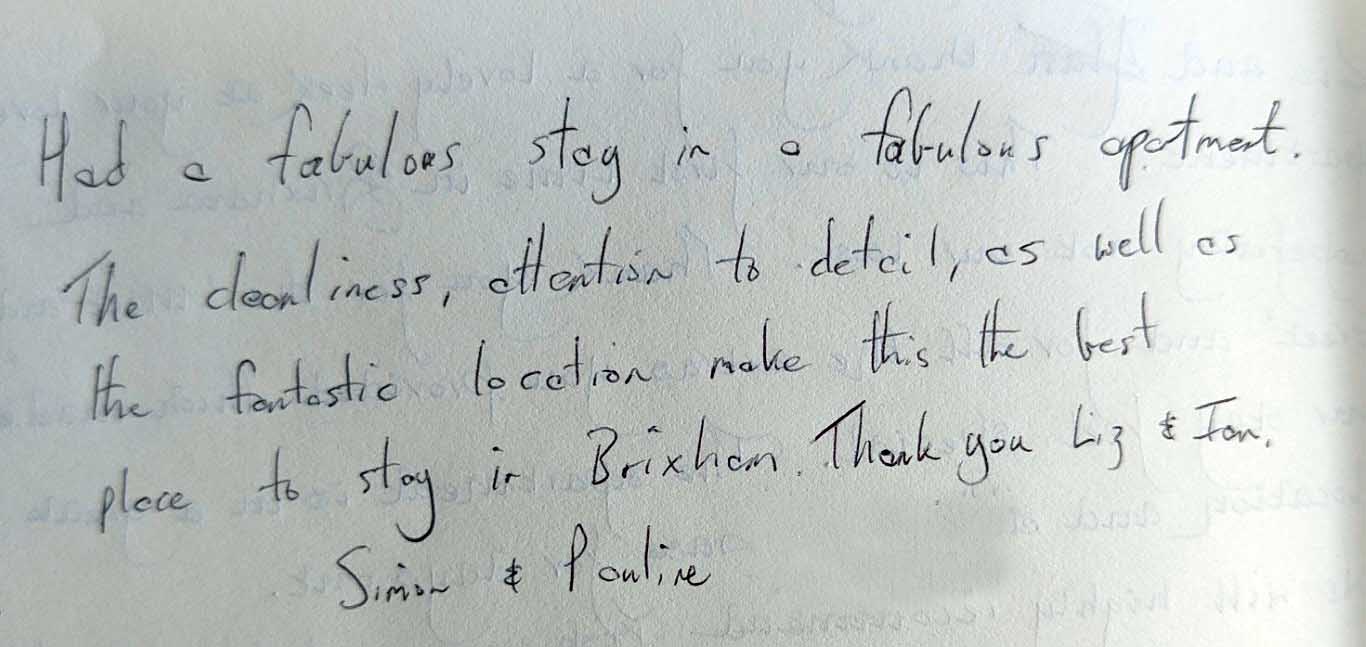 Had a fabulous stay in a fabulous apartment.
The cleanliness, attention to detail, as well as
the fantastic location make this the best
place to stay in Brixham. Thank you Liz & Ian.
Simon & Pauline